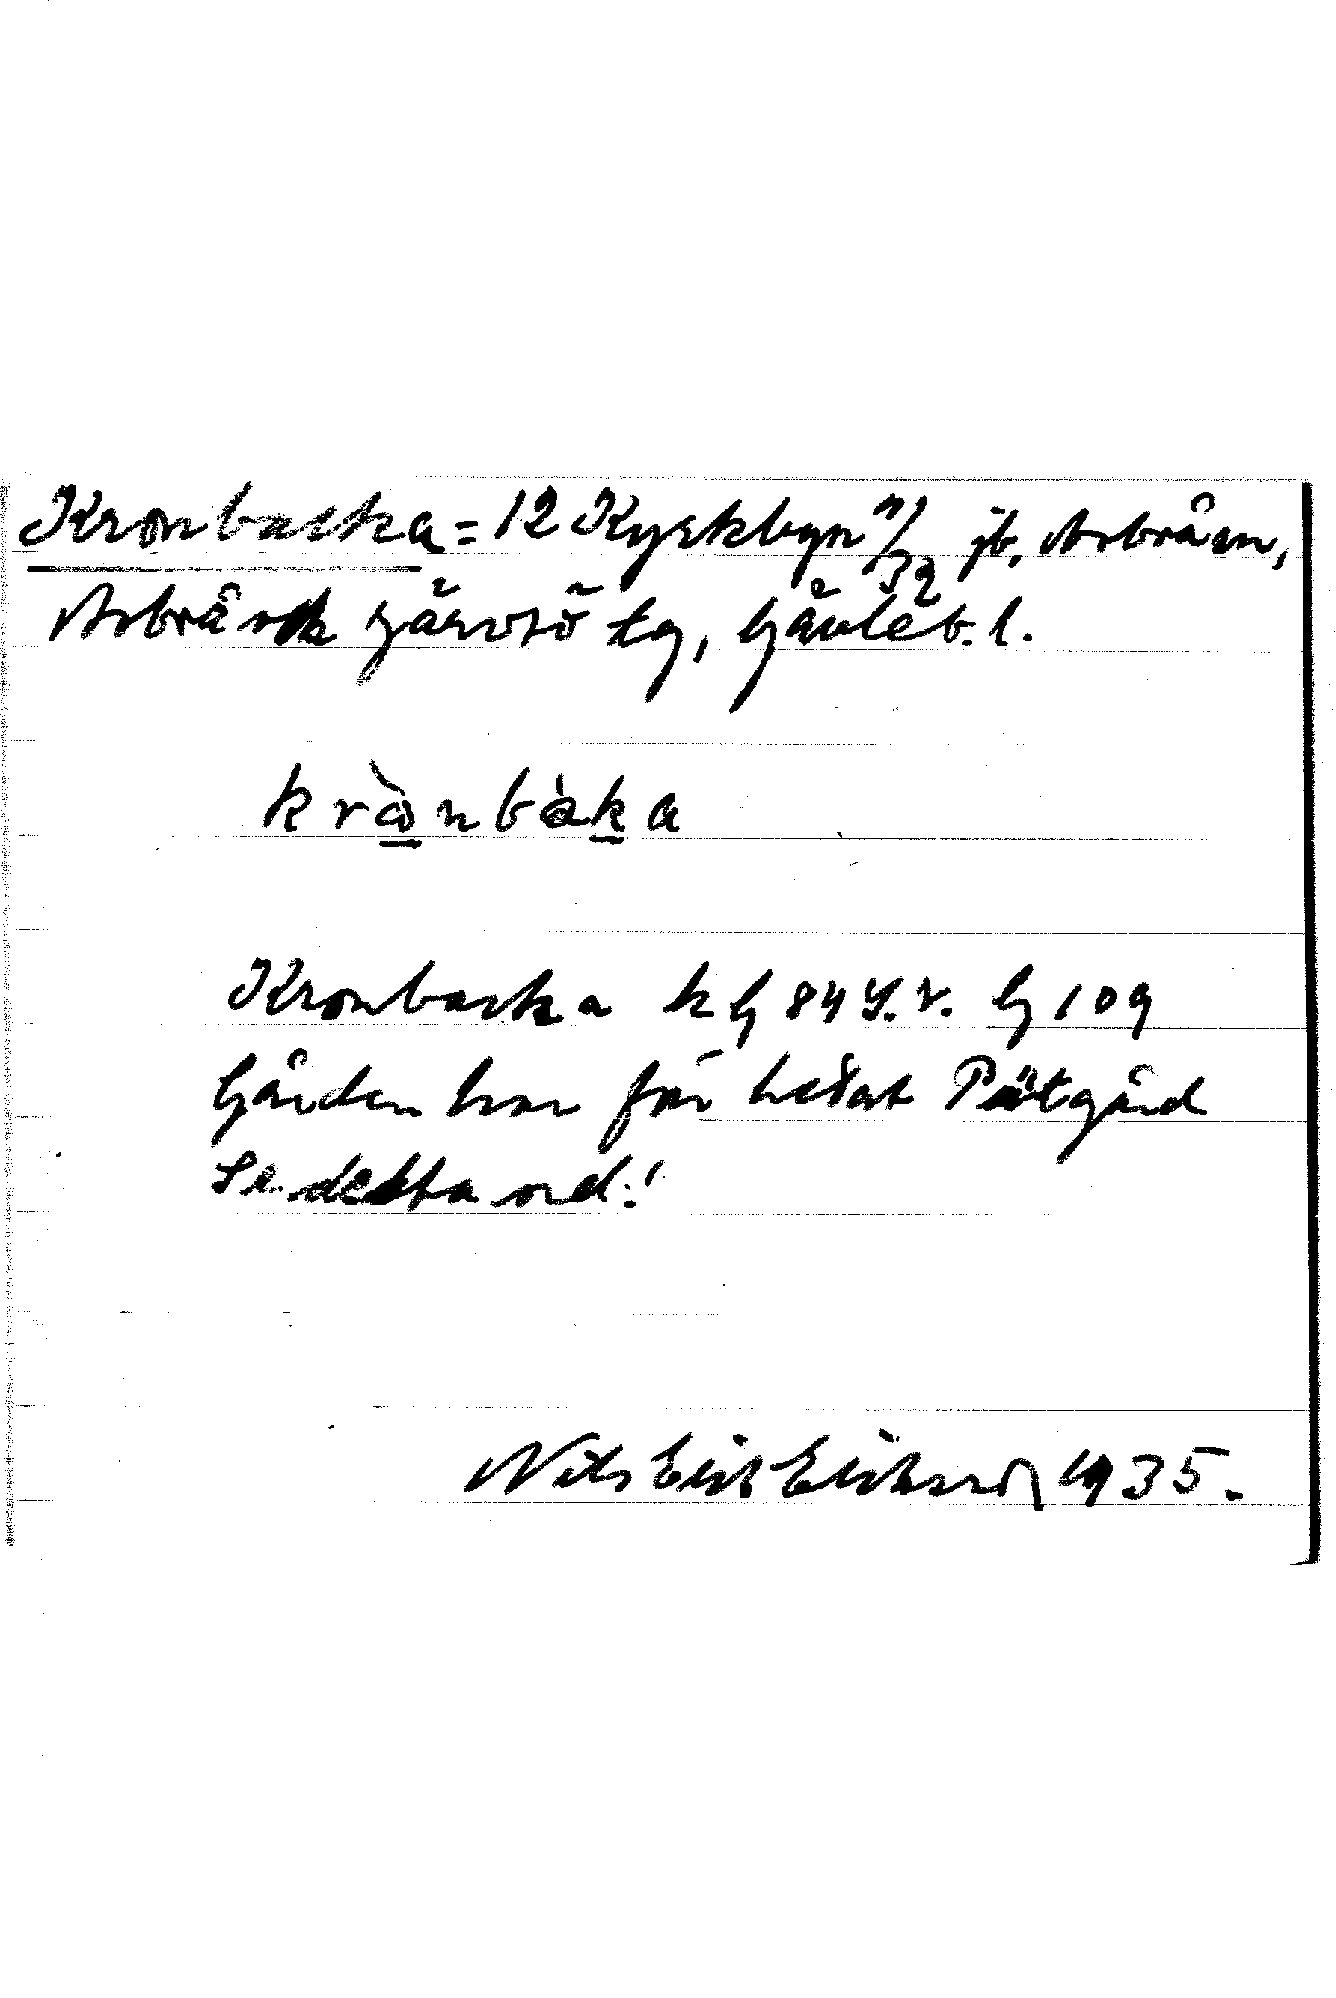 Kronbacka = 12 Kyrkbyn 7/32 jb, Arbrå sn,
Arbrå och Järvsö tg, Gävleb. l.
krònbàka
Kronbacka k G 84 S. v. G 109
Gården har förr hetat Pätgård
Se detta ord!
Nils Erik Eriksson 1935.